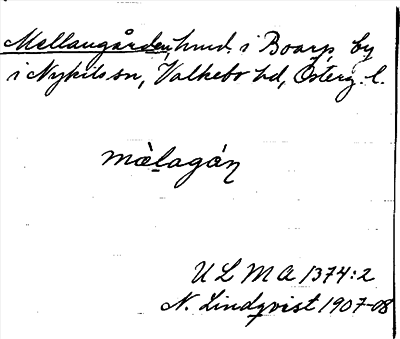 Mellangården, hmd. i Boarps by
i Nykils sn, Valkebo hd, Österg. l.
mạ̀lagán
U L M A 1374:2
N. Lindqvist 1907-08